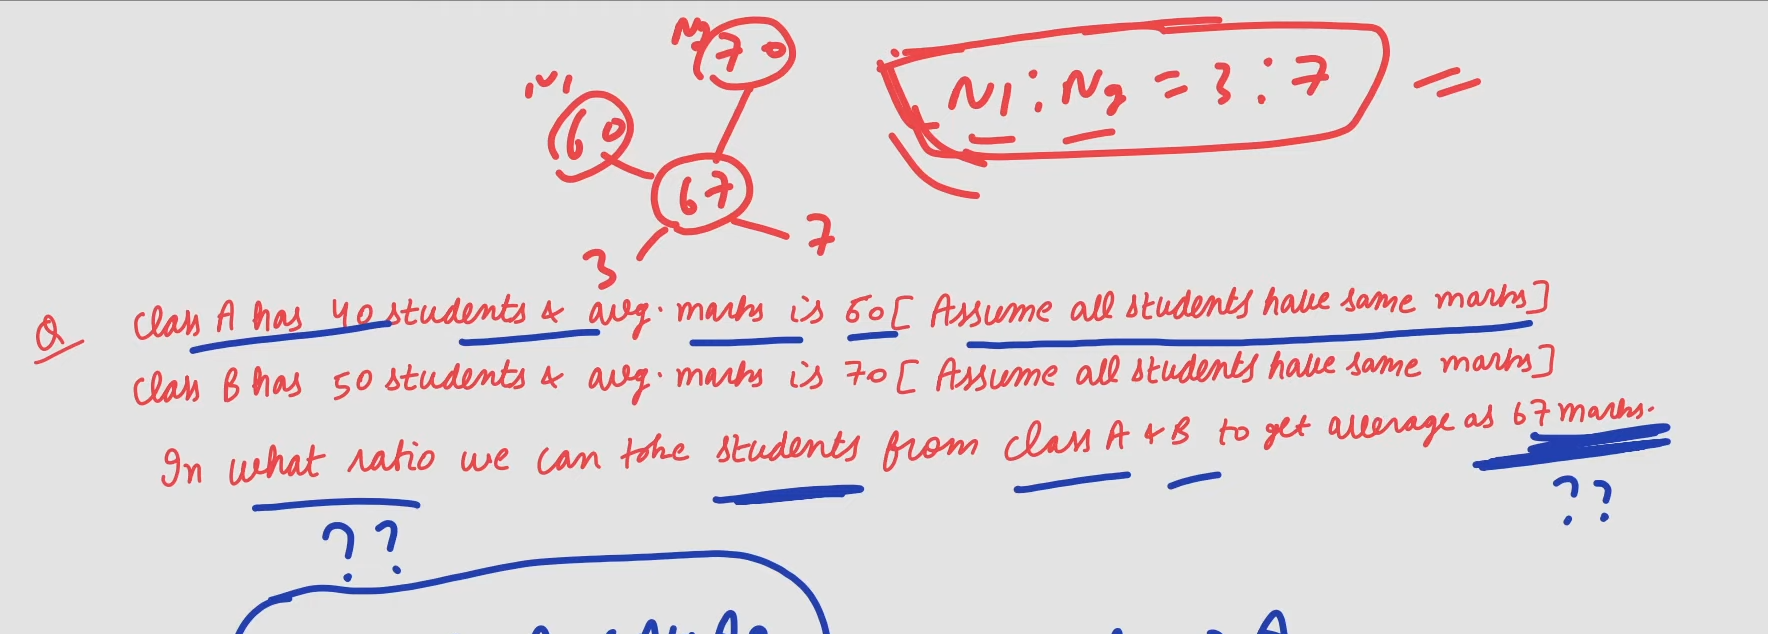 N2 70
N1 : N2 = 3 : 7
N1
60
67
3 7
Q Class A has 40 students & avg. marks is 60 [ Assume all students have same marks]
Class B has 50 students & avg. marks is 70 [ Assume all students have same marks]
In what ratio we can take students from class A & B to get average as 67 marks.
??
??